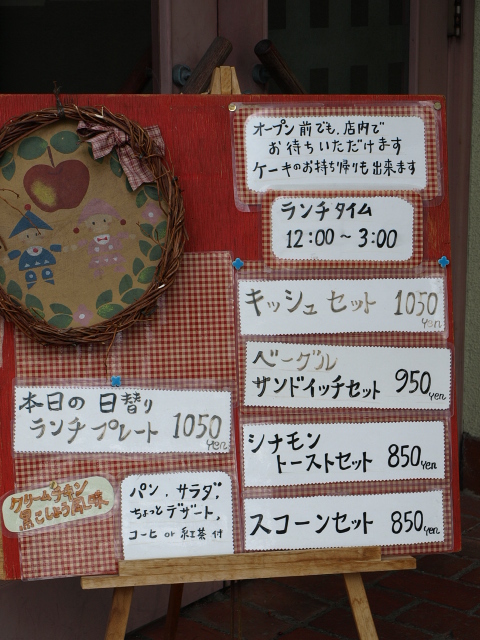 オープン前でも、店内で
お待ちいただけます
ケーキのお持ち帰りも出来ます
ランチタイム
12:00～3:00
キッシュセット 1050yen
ベーグル
サンドイッチセット 950yen
シナモン
トーストセット 850yen
スコーンセット 850yen
本日の日替り
ランチプレート 1050yen
クリームチキン
黒こしょう風味
パン、サラダ、
ちょっとデザート、
コーヒ or 紅茶 付